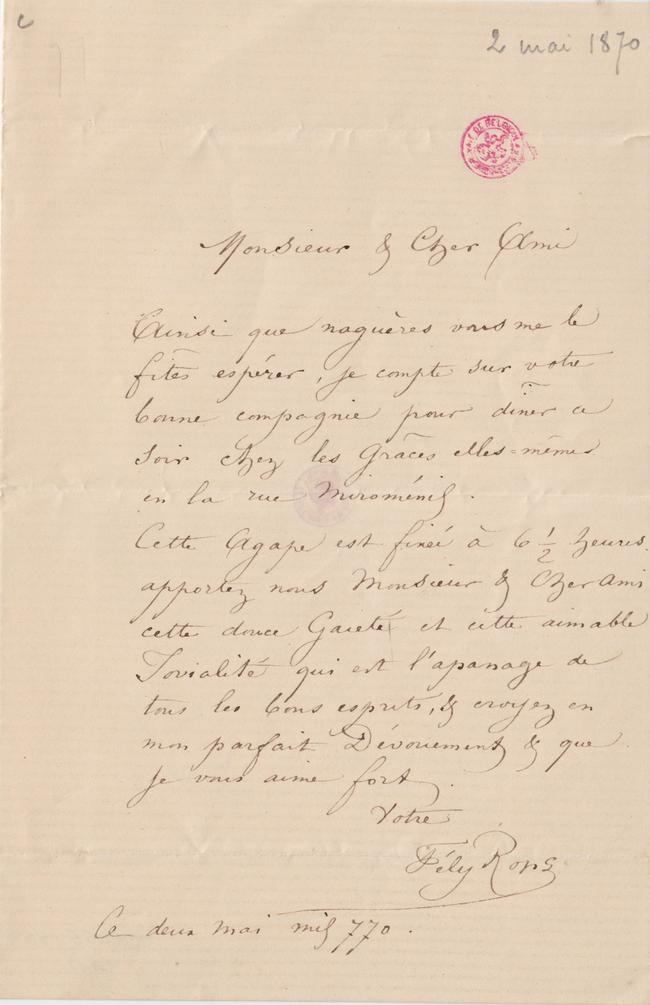 2 mai 1870
Monsieur & Cher Ami
Ainsi que naguères vous me le
fîtes espérer, je compte sur votre
bonne compagnie pour dîner ce
soir chez les Grâces elles=mêmes
en la rue Miroménil.
Cette Agape est fixée à 6 1/2 heures.
apportez nous Monsieur & Cher Ami
cette douce Gaieté et cette aimable
Jovialité qui est l'apanage de
tous les bons esprits, & croyez en
mon parfait Dévouement & que
je vous aime fort.
Votre
Fély Rops
Ce deux mai mil 770.